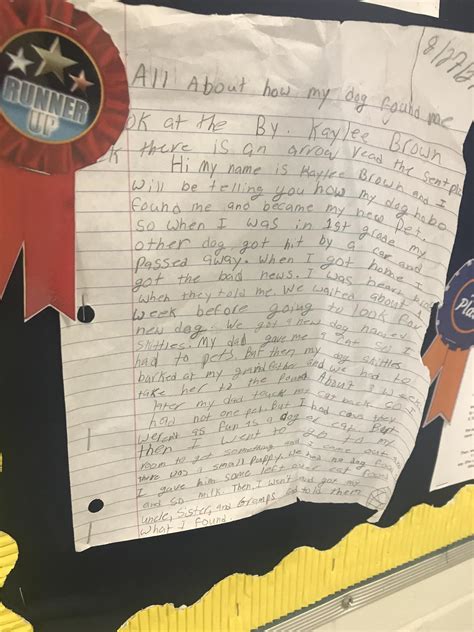 RUNNER
UP
8/27/
All About how my dog found me
ok at the By. Kaylee Brown
there is an arrow read the sent
Hi My name is Kaylee Brown and I
Will be telling you how my dog hobo
found me and became my new Pet.
So when I was in 1st grade my
other dog got hit by a car and
Passed away. When I got home I
got the bad news. I was heart
when they told me. We waited about
week before going to look for
new dog. We got a new dog named
Skittles. My dad gave me a cat so I
had to pets. But then my dog skittles
barked at my grandfather and we had to
take her to the Pound. About 2 week
later my dad took my cat back so I
had not one pet. But I had cows they
weren't as fun as a dog or cat. But
then I went to go to my
room to get something and I came out
there was a small puppy. We had no dog food
I gave him some left over cat food
and so milk. Then I went and got my
uncle, Sister, and Gramps and told them
What I found
Pla